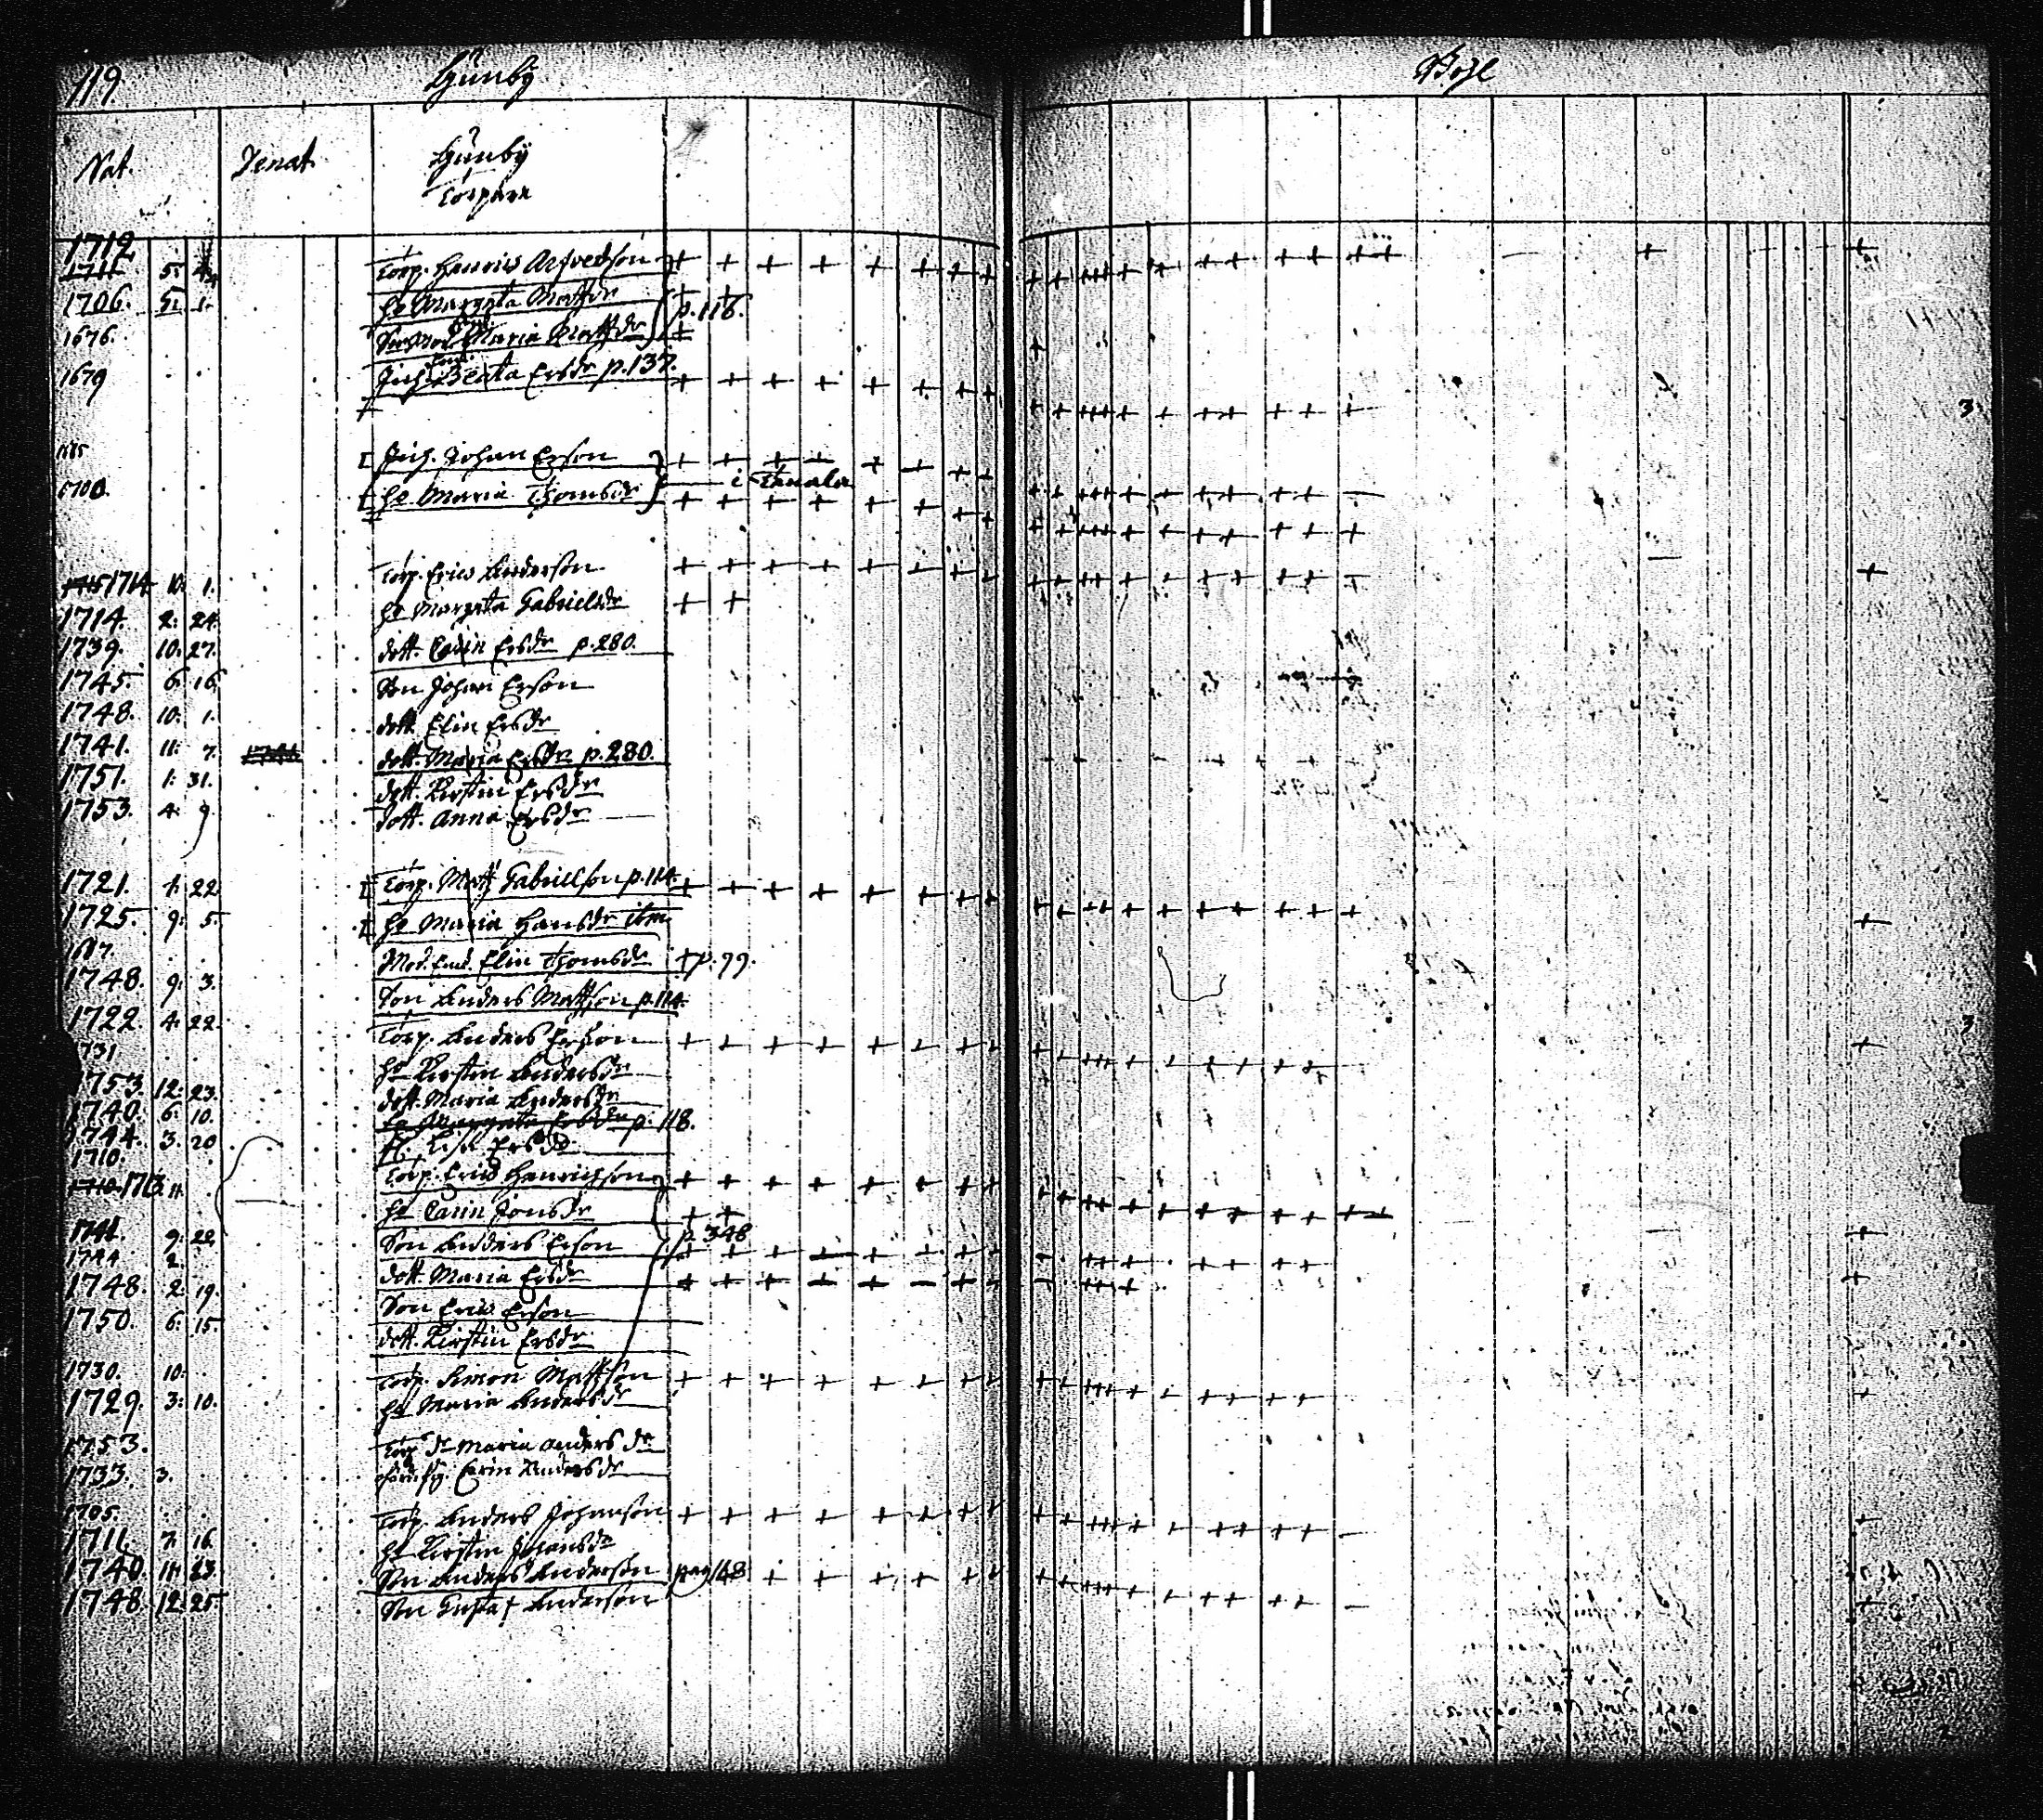 119. Gunby
Nat. Denat. Gunby
Torpare
1712
1711 5: 4 Torp. Henrich Alfredson
1706. 5: 1. hu Margeta Mattsdr p. 116.
1676. Maria Mattsdr
1679 Inh. Beata Ersdr p. 137.
Inh. Johan Erson
1700. hu Maria Thomsdr i Tenala
1715 1714 10: 1. Torp. Erich Anderson
1714. 2: 24. hu Margeta Gabrielsdr
1739. 10: 27. dott. Carin Ersdr p. 280.
1745. 6: 16. Son Johan Erson
1748. 10: 1. dott. Elin Ersdr
1741. 11: 7. dott. Maria Ersdr p. 280.
1751. 1: 31. dott. Kirstin Ersdr
1753. 4: 9. dott. Anna Ersdr
1721. 1: 22. Torp. Matts Gabrielson p. 114.
1725. 9: 5. hu Maria Hansdr item
1687. Mod. Enk. Elin Thomsdr p. 99.
1748. 9: 3. Son Anders Mattson p. 114.
1722. 4: 22. Torp. Anders Erson
1731 hu Kirstin Andersdr
1753. 12: 23. dott. Maria Andersdr
1740. 6: 10. hu Margeta Ersdr p. 118.
1744. 3: 20 Ersdr
1710. Torp. Erich Henrichson
1713. 11. hu Carin Jonsdr
1741. 9: 22 Son Anders Erson p. 348
1744 2. dott. Maria Ersdr
1748. 2: 19. Son Erich Erson
1750. 6: 15. dott. Kirstin Ersdr
1730. 10: Torp. Simon Mattson
1729. 3: 10. hu Maria Andersdr
1753. Torp dr Maria Anders dr
1733. 3. Carin Andersdr
1705. Torp. Anders Johanson
1711. 7: 16. hu Kirstin Johansdr
1740. 11: 23. Son Anders Anderson pag 168
1748. 12: 25. Son Gustaf Anderson
3
3
2